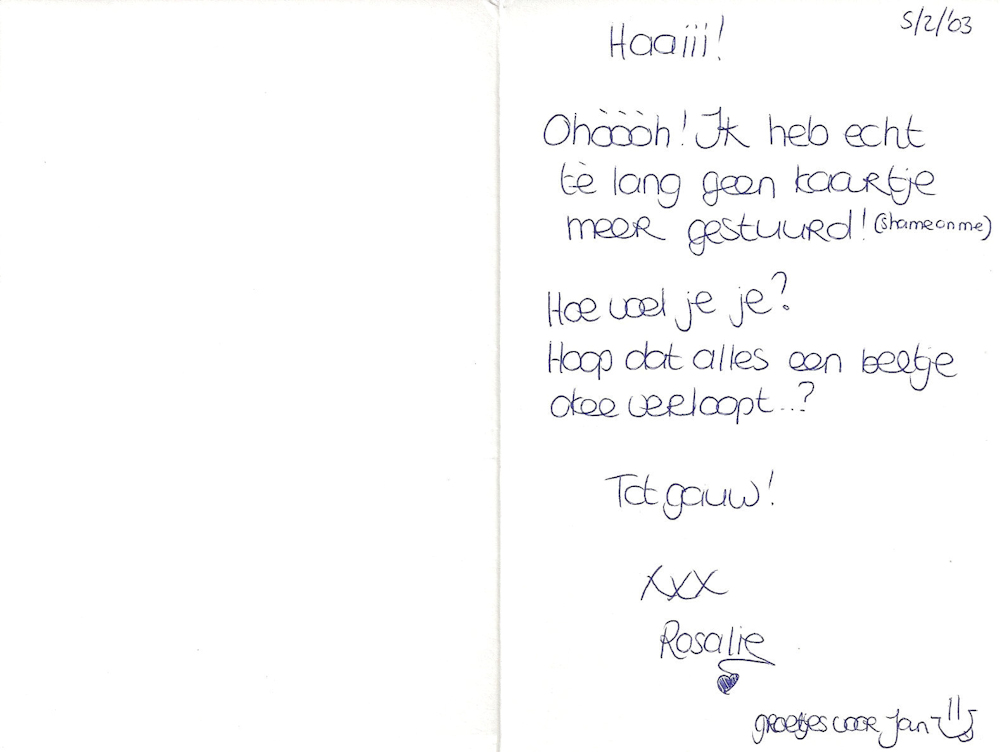 5/2/'03
Haaiii!
Ohòòòh! Ik heb echt
tè lang geen kaartje
meer gestuurd! (shame on me)
Hoe voel je je?
Hoop dat alles een beetje
okee verloopt...?
Tot gauw!
xxx
Rosalie
groetjes voor Jan